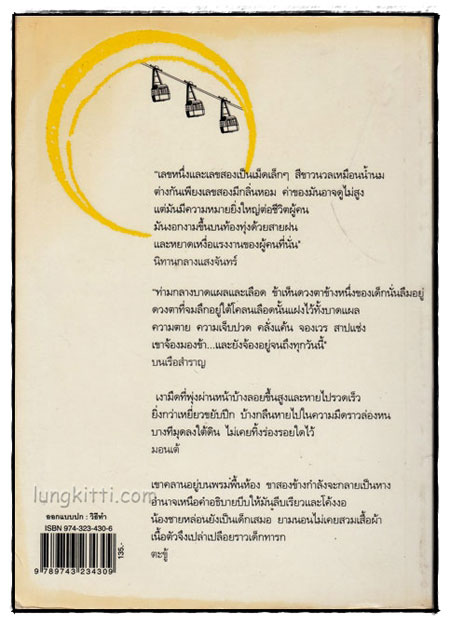 "เลขหนึ่งและเลขสองเป็นเม็ดเล็กๆ สีขาวนวลเหมือนน้ำนม
ต่างกันเพียงเลขสองมีกลิ่นหอม ค่าของมันอาจดูไม่สูง
แต่มันมีความหมายยิ่งใหญ่ต่อชีวิตผู้คน
มันงอกงามขึ้นบนท้องทุ่งด้วยสายฝน
และหยาดเหงื่อแรงงานของผู้คนที่นั่น"
นิทานกลางแสงจันทร์
"ท่ามกลางบาดแผลและเลือด ข้าเห็นดวงตาข้างหนึ่งของเด็กนั่นลืมอยู่
ดวงตาที่จมลึกอยู่ใต้โคลนเลือดนั้นแฝงไว้ทั้งบาดแผล
ความตาย ความเจ็บปวด คลั่งแค้น จองเวร สาปแช่ง
เขาจ้องมองข้า...และยังจ้องอยู่จนถึงทุกวันนี้"
บนเรือสำราญ
เงามืดที่พุ่งผ่านหน้าบ้างลอยขึ้นสูงและหายไปรวดเร็ว
ยิ่งกว่าเหยี่ยวขยับปีก บ้างกลืนหายไปในความมืดราวล่องหน
บางทีมุดลงใต้ดิน ไม่เคยทิ้งร่องรอยใดไว้
มอนเต้
เขาคลานอยู่บนพรมพื้นห้อง ขาสองข้างกำลังจะกลายเป็นหาง
อำนาจเหนือคำอธิบายบีบให้มันลีบเรียวและโค้งงอ
น้องชายหล่อนยังเป็นเด็กเสมอ ยามนอนไม่เคยสวมเสื้อผ้า
เนื้อตัวจึงเปล่าเปลือยราวเด็กทารก
ตะขู้
lungkitti.com
ออกแบบปก : วิธีทำ
ISBN 974-323-430-6
135.-
9 789743 234309